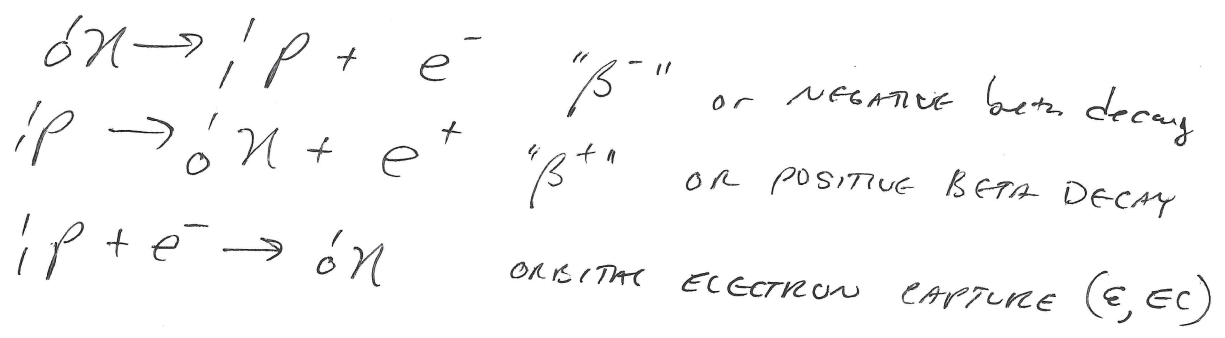 ¹₀n → ¹₁p + e⁻ "β⁻" or NEGATIVE beta decay
¹₁p → ¹₀n + e⁺ "β⁺" OR POSITIVE BETA DECAY
¹₁p + e⁻ → ¹₀n ORBITAL ELECTRON CAPTURE (ε, EC)